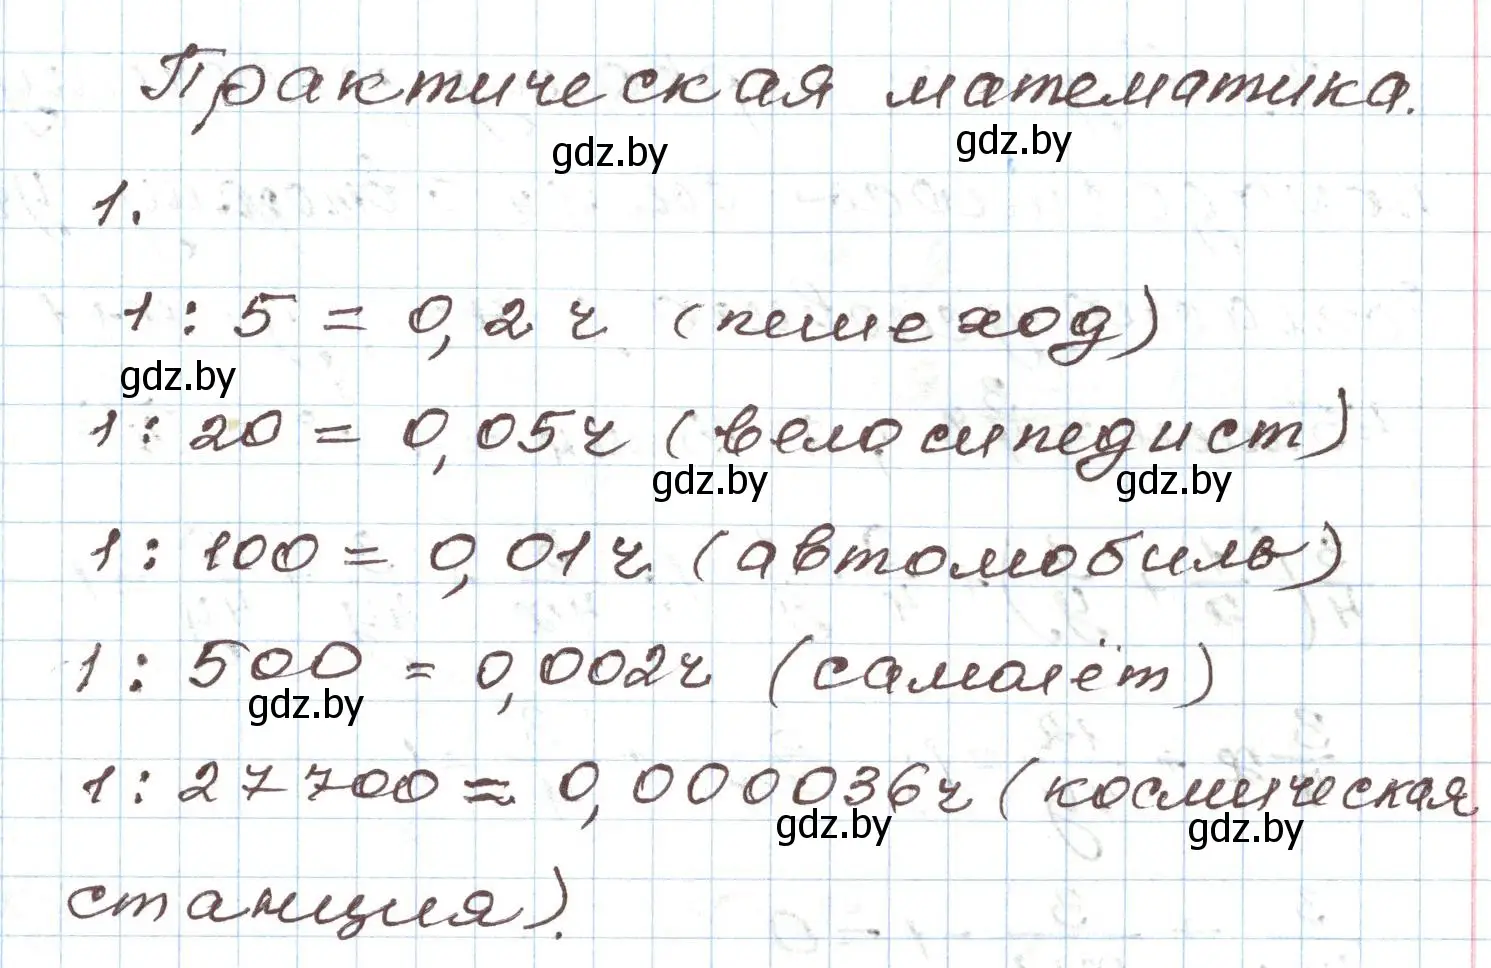 Практическая математика.
gdz.by gdz.by
1.
1 : 5 = 0,2 ч (пешеход)
gdz.by
1 : 20 = 0,05 ч (велосипедист)
gdz.by gdz.by
1 : 100 = 0,01 ч (автомобиль)
1 : 500 = 0,002 ч (самолёт)
gdz.by
1 : 27 700 ≈ 0,000036 ч (космическая
gdz.by gdz.by
станция).